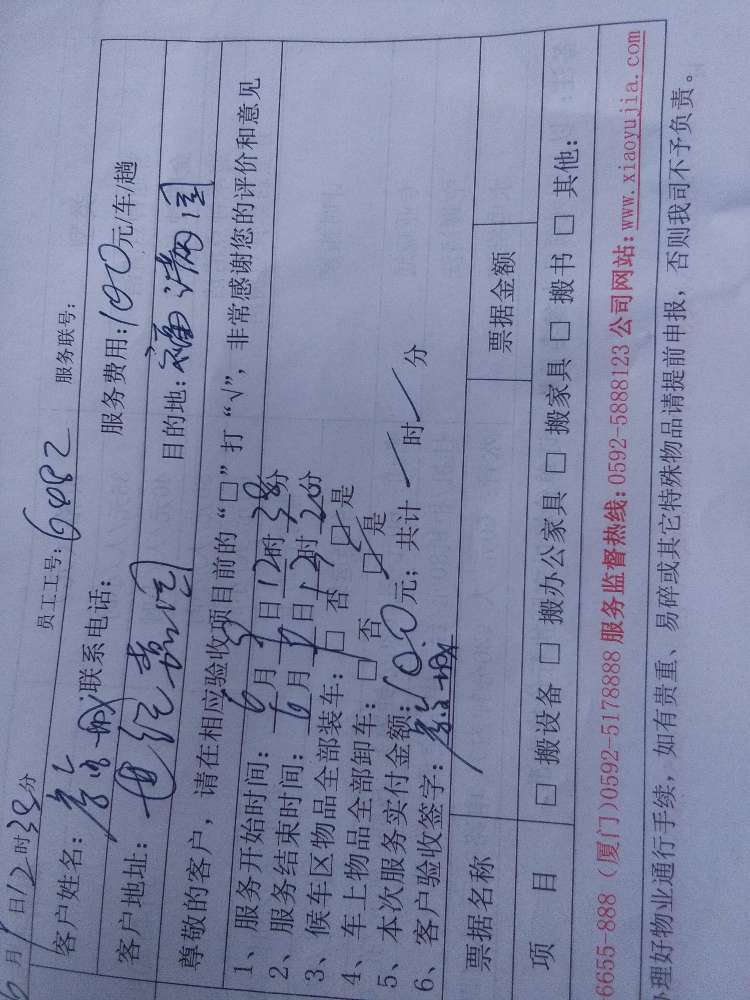 6月1日12时38分 员工工号:6482 服务联号:
客户姓名: 联系电话: 服务费用:100元/车/趟
客户地址:世纪嘉园 目的地:福满园
尊敬的客户，请在相应验收项目前的“□”打“√”，非常感谢您的评价和意见
1、服务开始时间：6月 日12时38分
2、服务结束时间：6月 日 时20分
3、候车区物品全部装车：□ 否 ☑ 是
4、车上物品全部卸车：□ 否 ☑ 是
5、本次服务实付金额：100元；共计 / 时 / 分
6、客户验收签字：
票据名称 票据金额
项 目 □ 搬设备 □ 搬办公家具 □ 搬家具 □ 搬书 □ 其他：
6655-888（厦门）0592-5178888 服务监督热线:0592-5888123 公司网站:www.xiaoyujia.com
办理好物业通行手续，如有贵重、易碎或其它特殊物品请提前申报，否则我司不予负责。